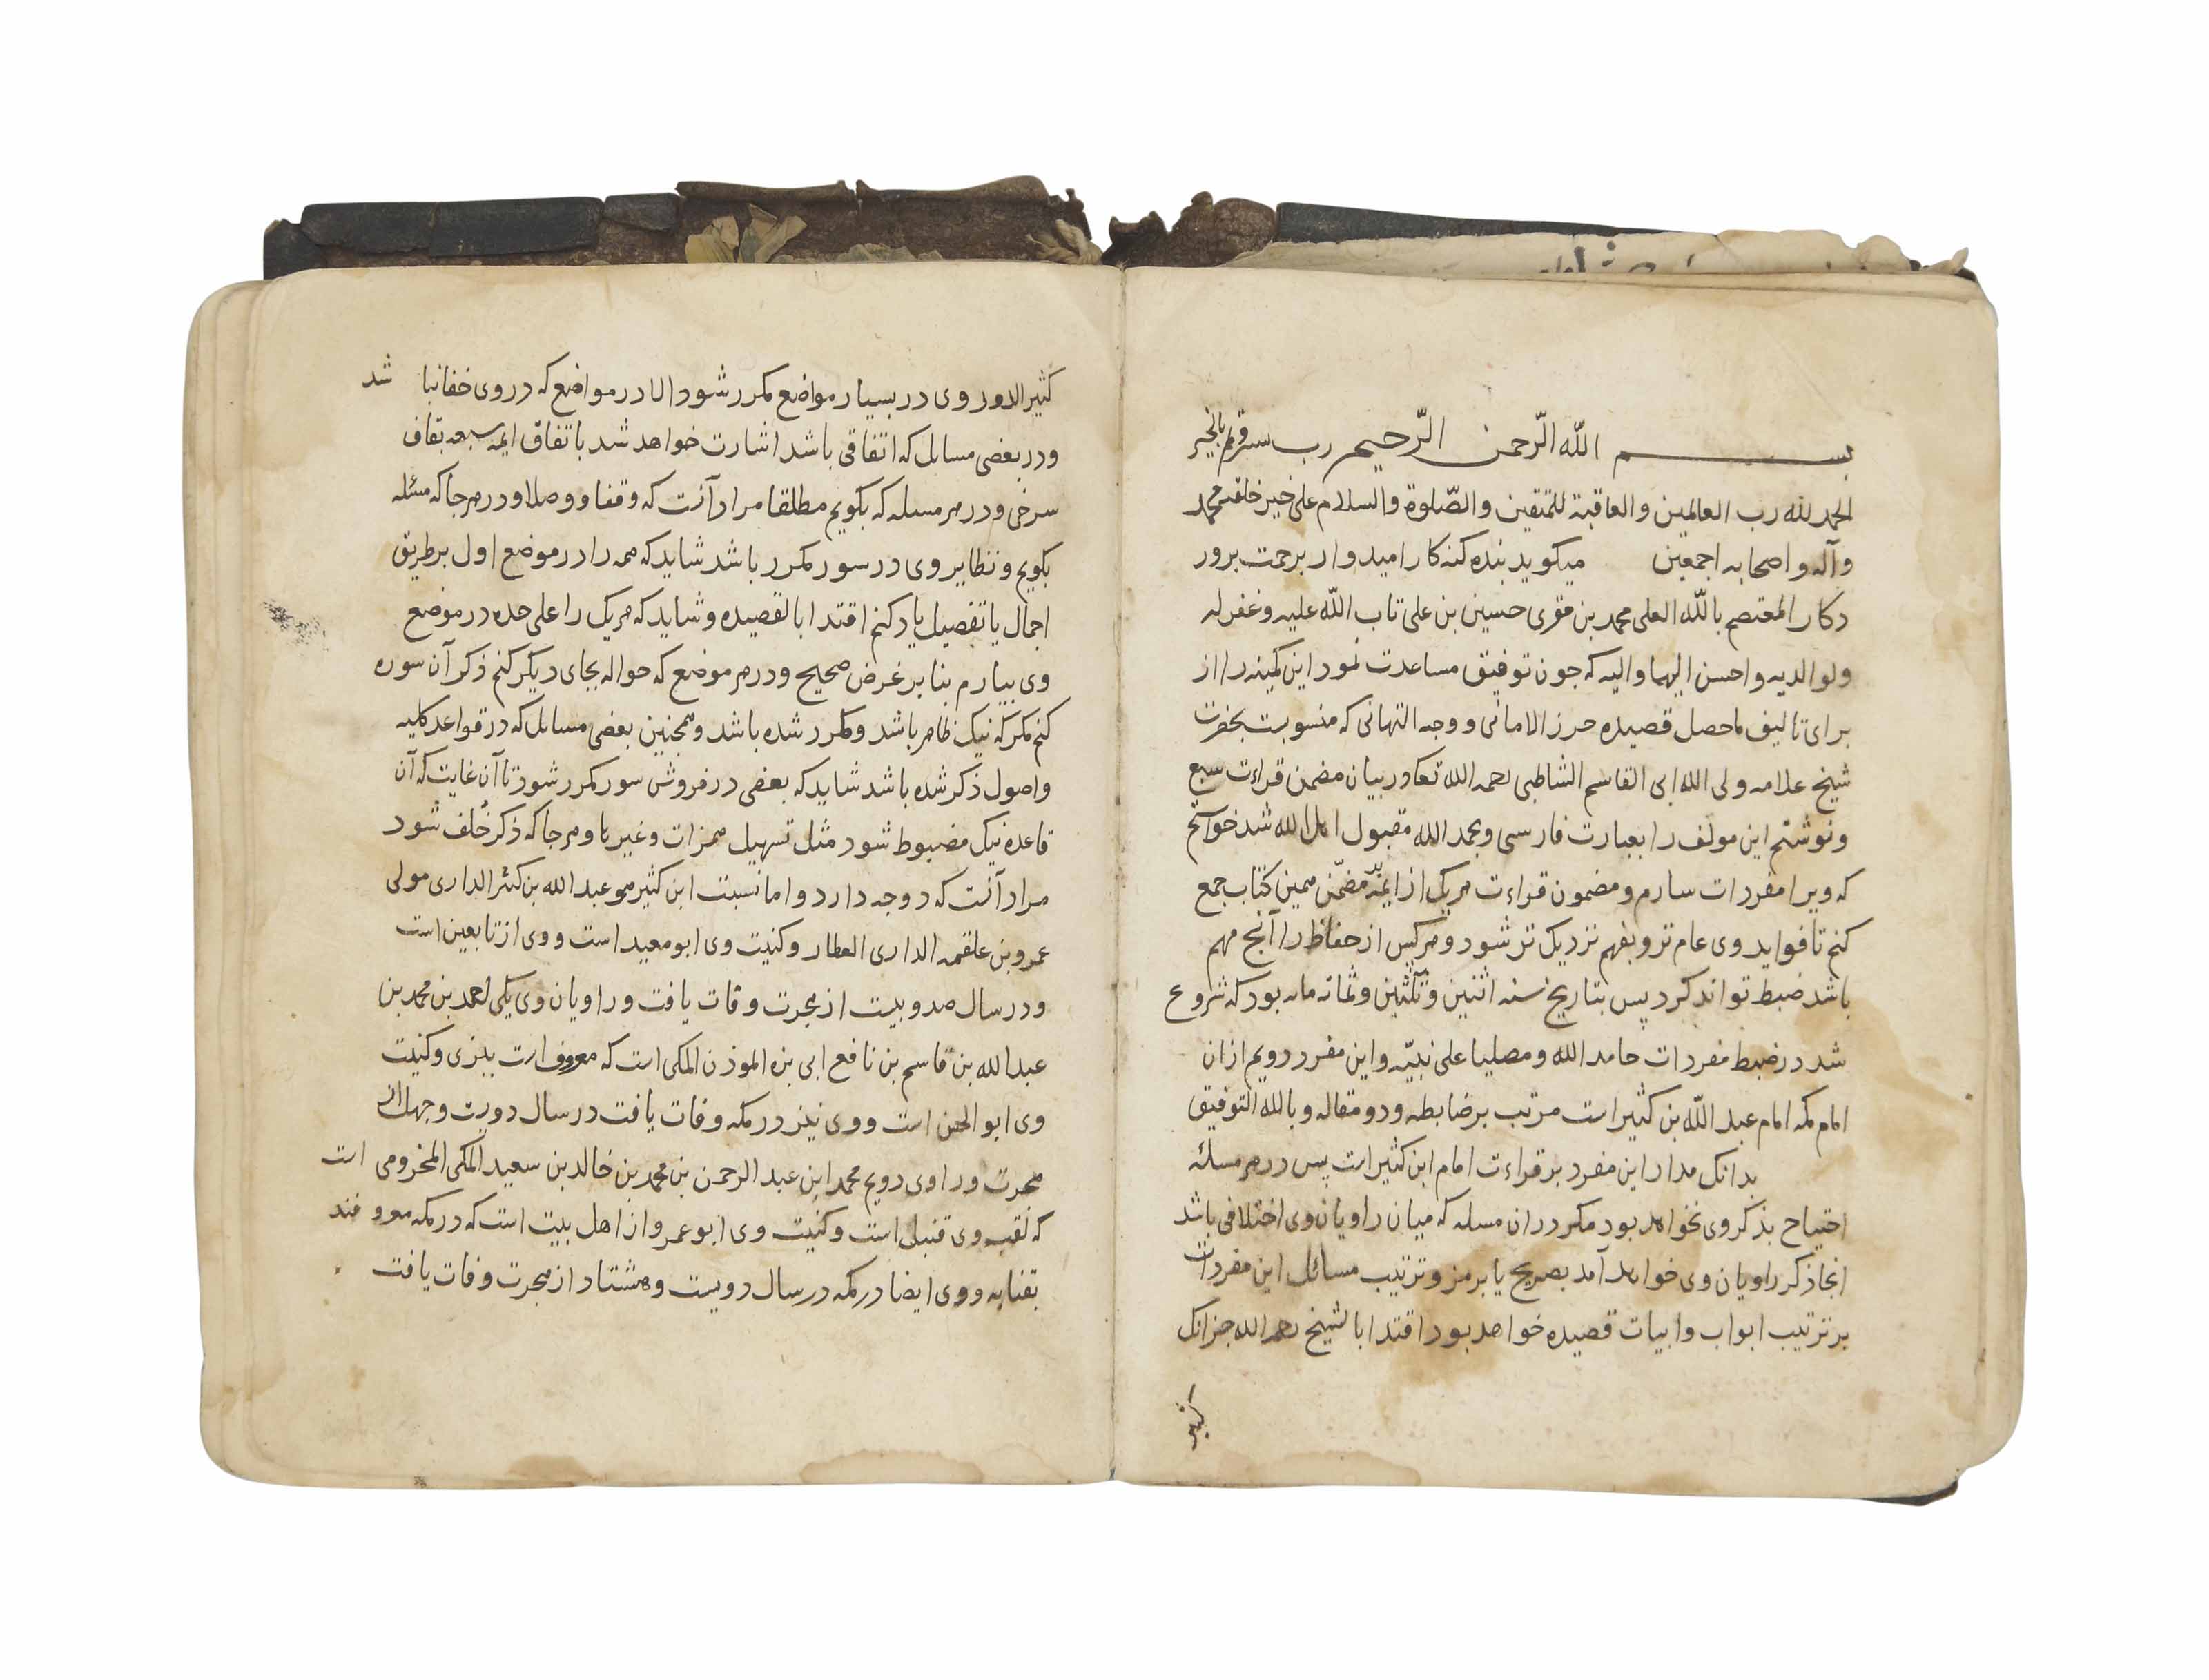 بسم الله الرّحمن الرّحيم رب يسر وتمم بالخير
الحمد لله رب العالمين والعاقبة للمتقين والصّلوة والسلام على خير خلقه محمد
وآله واصحابه اجمعين ميكويد بنده كنه كار اميدوار برحمت پرور
دكار المعتصم بالله العلى محمد بن مقرى حسين بن على تاب الله عليه وغفر له
ولوالديه واحسن اليهما واليه كه جون توفيق مساعدت نمود اين كمينه را از
براى تاليف ماحصل قصيده حرز الامانى ووجه التهانى كه منسوبست بحضرت
شيخ علامه ولى الله ابى القاسم الشاطبى رحمه الله تعالى در بيان مضمن قراءت سبع
ونوشتم اين مولف را بعبارت فارسى وبحمد الله مقبول اهل الله شد خواستم
كه ويرا مفردات سازم ومضمون قراءت هر يك از ايمه مضمّن همين كتاب جمع
كنم تا فوايد وى عام تر وبفهم نزديك تر شود وهر كس از حفاظ را آنج مهم
باشد ضبط تواند كرد پس بتاريخ سنه اثنين وثلثين وثمانه مايه بود كه شروع
شد در ضبط مفردات حامدا لله ومصليا على نبيّه واين مفرد دويم از ان
امام مكه امام عبد الله بن كثير است مرتب بر ضابطه ودو مقاله وبالله التوفيق
بدانك مدار اين مفرد بر قراءت امام ابن كثير است پس در هر مسئله
احتياج بذكر وى نخواهد بود مكر در ان مسله كه ميان راويان وى اختلافى باشد
انجا ذكر راويان وى خواهد آمد بصريح يا برمز وترتيب مسائل اين مفردات
بر ترتيب ابواب وابيات قصيده خواهد بود اقتدا بالشيخ رحمه الله جز انك
كثير
كثير الدور وى در بسيار مواضع مكرر شود الا در مواضع كه در وى خفا نبا شد
ودر بعضى مسايل كه اتفاقى باشد اشارت خواهد شد باتفاق ايمه سبعه بقاف
سرخى ودر هر مسله كه بكويم مطلقا مراد آنست كه وقفا ووصلا ودر هر جا كه مسئله
بكويم ونظاير وى در سور مكرر باشد شايد كه همه را در موضع اول بر طريق
اجمال يا تفصيل ياد كنم اقتدا بالقصيده وشايد كه هر يك را على حده در موضع
وى بيارم بنا بر غرض صحيح ودر هر موضع كه حواله بجاى ديكر كنم ذكر آن سوره
كنم مكر كه نيك ظاهر باشد ومكرر شده باشد وهمجنين بعضى مسايل كه در قواعد كليه
واصول ذكر شده باشد شايد كه بعضى در فروش سور مكرر شود تا آن غايت كه آن
قاعده نيك مضبوط شود مثل تسهيل همزات وغيرها وهر جا كه ذكر خلف شود
مراد آنست كه دو وجه دارد واما نسبت ابن كثير هو عبد الله بن كثير الدارى مولى
عمرو بن علقمه الدارى العطار وكنيت وى ابو معبد است ووى از تابعين است
ودر سال صد وبيست از هجرت وفات يافت وراويان وى يكى احمد بن محمد بن
عبد الله بن قاسم بن نافع ابى بزه الموذن المكى است كه معروف است ببزى وكنيت
وى ابو الحسن است ووى نيز در مكه وفات يافت در سال دويست وچهل از
هجرت وراوى دويم محمد ابن عبد الرحمن بن محمد بن خالد بن سعيد المكى المخزومى است
كه لقب وى قنبل است وكنيت وى ابو عمر واز اهل بيت است كه در مكه معرو فند
بقنابه ووى ايضا در مكه در سال دويست وهشتاد از هجرت وفات يافت